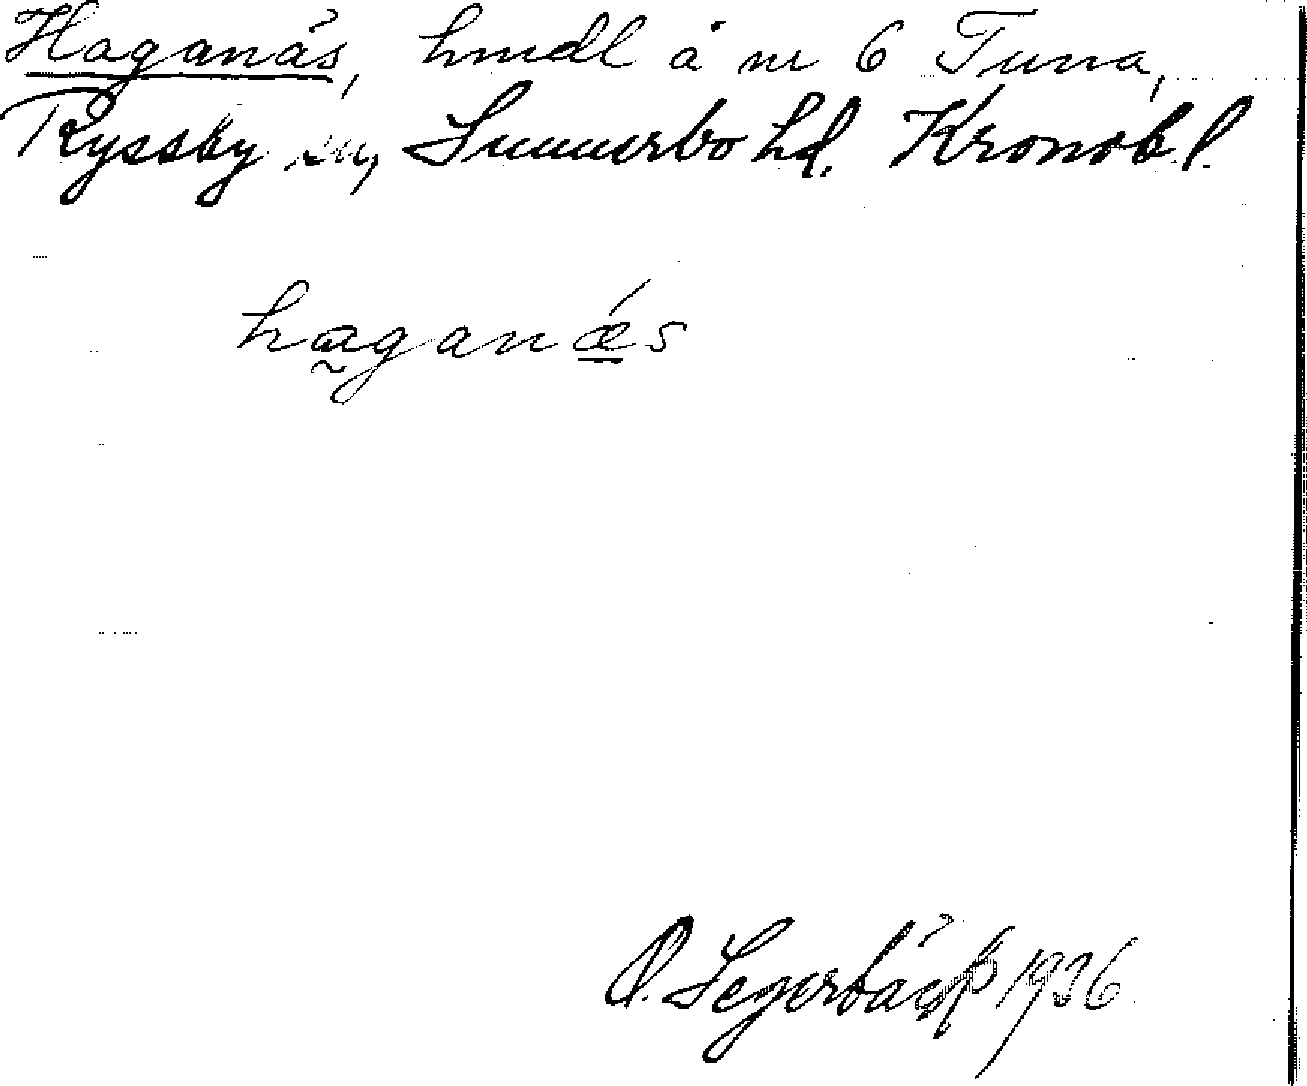 Haganäs, hmdl å nr 6 Tuna,
Ryssby sn, Sunnerbo hd. Kronob. l.
haganǽs
O. Segerbäck 1936